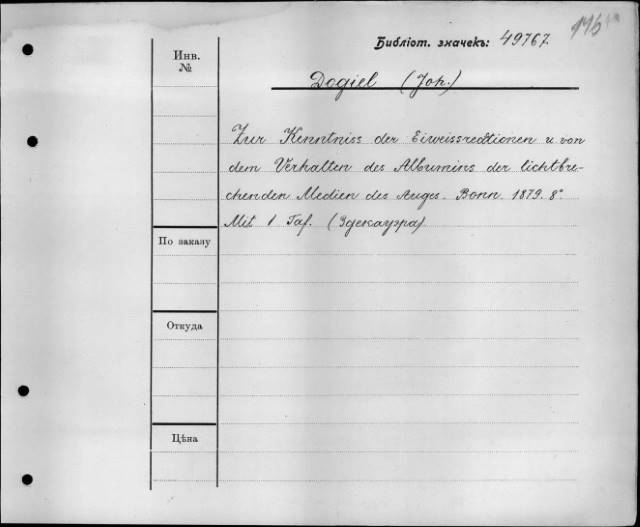 Библіот. значекъ: 49767.
Инв.
№
Dogiel (Joh.)
Zur Kenntniss der Eiweissreaktionen u von
dem Verhalten des Albumins der lichtbre-
chenden Medien des Auges. Bonn. 1879. 8°.
Mit 1 Taf. (Здекауэра)
По заказу
Откуда
Цѣна